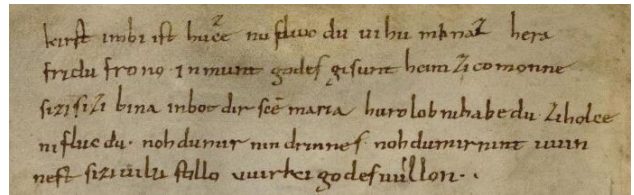 kirst imbi ist hucze nu fluic du uihu minaz hera
fridu frono in munt godes gisunt heim zi comonne
sizi sizi bina inbot dir sce maria hurolob nihabe du zi holce
ni fluc du · noh du mir nindrinnes · noh du mir nint uuin
nest sizi uilu stillo uuirki godes uuillon ·